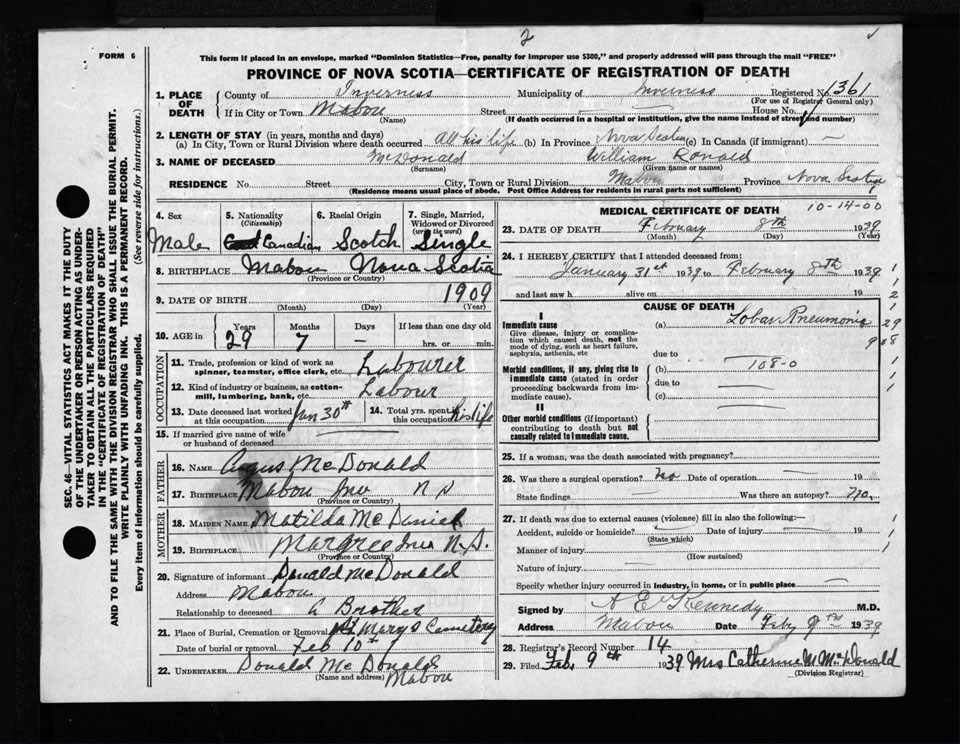 2
FORM 6
This form if placed in an envelope, marked "Dominion Statistics—Free, penalty for improper use $300," and properly addressed will pass through the mail "FREE"
PROVINCE OF NOVA SCOTIA—CERTIFICATE OF REGISTRATION OF DEATH
SEC. 46—VITAL STATISTICS ACT MAKES IT THE DUTY
OF THE UNDERTAKER OR PERSON ACTING AS UNDER-
TAKER TO OBTAIN ALL THE PARTICULARS REQUIRED
IN THE "CERTIFICATE OF REGISTRATION OF DEATH"
AND TO FILE THE SAME WITH THE DIVISION REGISTRAR WHO SHALL ISSUE THE BURIAL PERMIT.
WRITE PLAINLY WITH UNFADING INK. THIS IS A PERMANENT RECORD.
Every item of information should be carefully supplied. (See reverse side for instructions.)
1. PLACE OF DEATH County of Inverness Municipality of Inverness Registered No. 1361
(For use of Registrar General only)
If in City or Town Mabou Street — House No.
(Name) (If death occurred in a hospital or institution, give the name instead of street and number)
2. LENGTH OF STAY (in years, months and days)
(a) In City, Town or Rural Division where death occurred All his life (b) In Province Nova Scotia (c) In Canada (if immigrant) —
3. NAME OF DECEASED McDonald William Ronald
(Surname) (Given name or names)
RESIDENCE No. Street City, Town or Rural Division Mabou Province Nova Scotia
(Residence means usual place of abode. Post Office Address for residents in rural parts not sufficient)
4. Sex Male
5. Nationality (Citizenship) Canadian
6. Racial Origin Scotch
7. Single, Married, Widowed or Divorced (write the word) Single
8. BIRTHPLACE Mabou Nova Scotia
(Province or Country)
9. DATE OF BIRTH 1909
(Month) (Day) (Year)
10. AGE in Years 29 Months 7 Days — If less than one day old hrs. or min.
OCCUPATION
11. Trade, profession or kind of work as spinner, teamster, office clerk, etc. Labourer
12. Kind of industry or business, as cotton-mill, lumbering, bank, etc. Labour
13. Date deceased last worked at this occupation Jan 30th
14. Total yrs. spent in this occupation his life
15. If married give name of wife or husband of deceased —
FATHER
16. NAME Angus McDonald
17. BIRTHPLACE Mabou Inv N S
(Province or Country)
MOTHER
18. MAIDEN NAME Matilda McDaniel
19. BIRTHPLACE Margree Inv N.S.
(Province or Country)
20. Signature of informant Donald McDonald
Address Mabou
Relationship to deceased A Brother
21. Place of Burial, Cremation or Removal St Marys Cemetery
Date of burial or removal Feb 10th
22. UNDERTAKER Donald McDonald
(Name and address) Mabou
MEDICAL CERTIFICATE OF DEATH 10-14-00
23. DATE OF DEATH February 8th 1939
(Month) (Day) (Year)
24. I HEREBY CERTIFY that I attended deceased from:
January 31st 1939 to February 8th 1939
and last saw h alive on 19
CAUSE OF DEATH
I
Immediate cause (a) Lobar Pneumonia
Give disease, injury or complication which caused death, not the mode of dying, such as heart failure, asphyxia, asthenia, etc
due to
Morbid conditions, if any, giving rise to immediate cause (stated in order proceeding backwards from immediate cause). (b) 108-0
due to
(c)
II
Other morbid conditions (if important) contributing to death but not causally related to immediate cause.
25. If a woman, was the death associated with pregnancy?
26. Was there a surgical operation? no Date of operation — 19
State findings — Was there an autopsy? no.
27. If death was due to external causes (violence) fill in also the following:—
Accident, suicide or homicide? — Date of injury — 19
(State which)
Manner of injury —
(How sustained)
Nature of injury —
Specify whether injury occurred in industry, in home, or in public place —
Signed by A E Kennedy M.D.
Address Mabou Date Feby 9th 1939
28. Registrar's Record Number 14
29. Filed Feb 9th 1939 Mrs Catherine M McDonald
(Division Registrar)